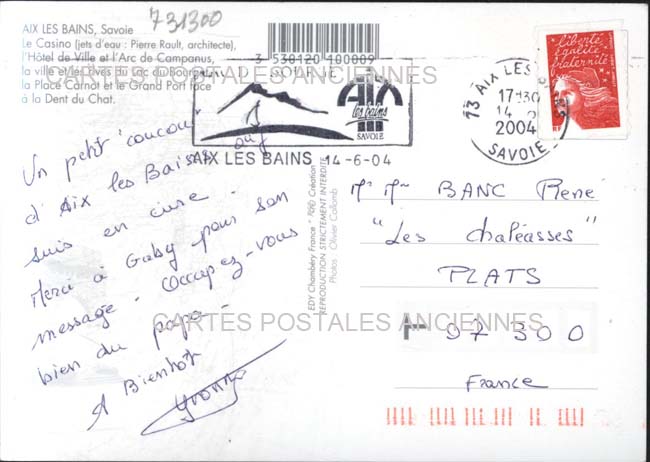 731300
AIX LES BAINS, Savoie
Le Casino (jets d'eau : Pierre Rault, architecte),
l'Hôtel de Ville et l'Arc de Campanus,
la ville et les rives du lac du Bourget,
la Place Carnot et le Grand Port face
à la Dent du Chat.
3 530120 100009
CARTES POSTALES ANCIENNES
AIX
les bains
SAVOIE
AIX LES BAINS 14-6-04
liberté
égalité
fraternité
73 AIX LES
17H30
14 6
2004
SAVOIE
Un petit coucou
d'Aix les Bains où j
suis en cure.
Merci à Gaby pour son
message. Occupez-vous
bien du papa.
A Bientôt
Yvonne
EDY Chambéry France Création
REPRODUCTION STRICTEMENT INTERDITE
Photos : Olivier Collomb
Mr Mme BANC René
"Les chaléasses"
PLATS
CARTES POSTALES ANCIENNES
07300
France